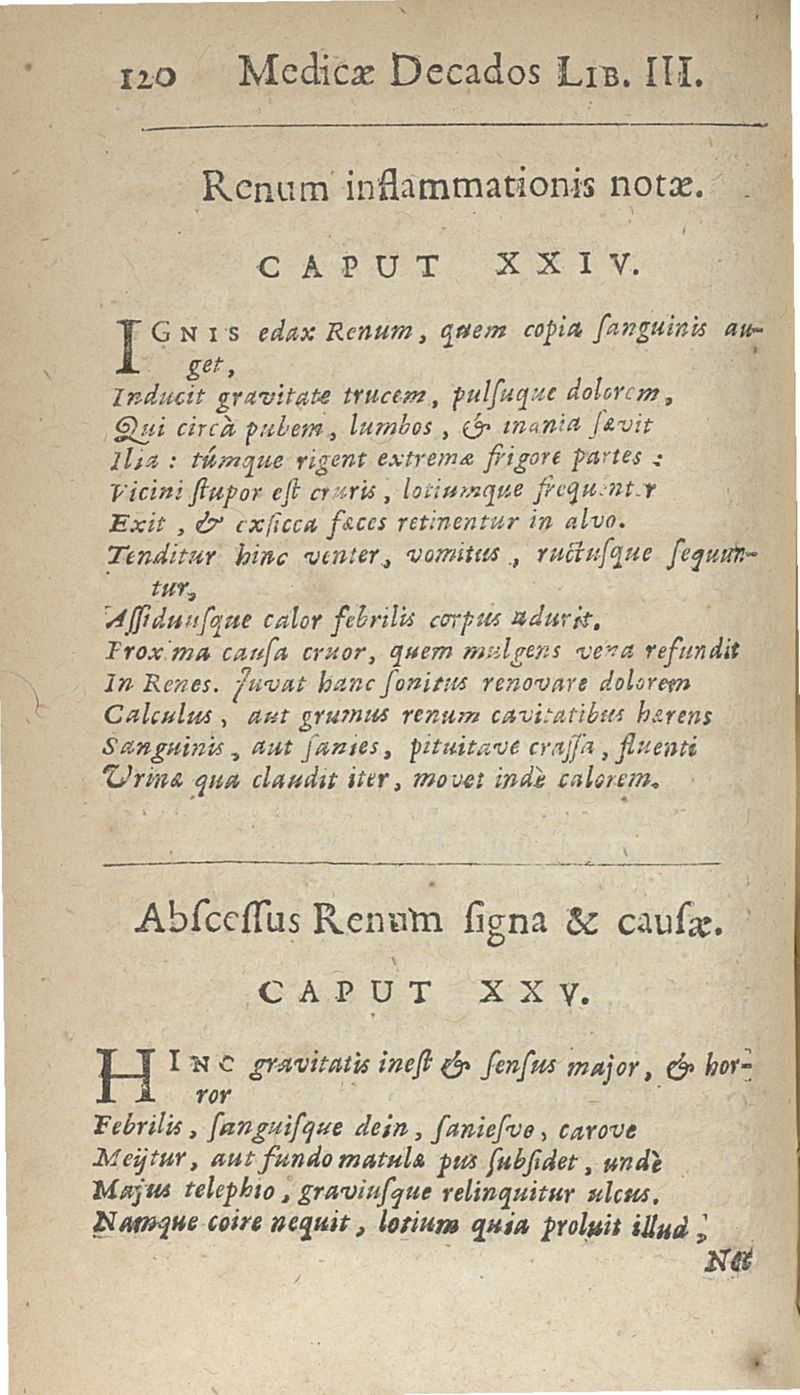 120 Medicæ Decados LIB. III.
Renum inflammationis notæ.
CAPUT XXIV.
IGNIS edax Renum, quem copia ſanguinis au-
get,
Inducit gravitate trucem, pulſuque dolorem,
Qui circà pubem, lumbos, & inania ſævit
Ilia: túmque rigent extremæ frigore partes:
Vicini ſtupor eſt cruris, lotiumque frequenter
Exit, & exſicca fæces retinentur in alvo.
Tenditur hinc venter, vomitus, ructuſque ſequun-
tur,
Aſſiduuſque calor febrilis corpus adurit.
Proxima cauſa cruor, quem mulgens vena refundit
In Renes. Juvat hanc ſonitus renovare dolorem
Calculus, aut grumus renum cavitatibus hærens
Sanguinis, aut ſanies, pituitave craſſa, fluenti
Urinæ qua claudit iter, movet indè calorem.
Abſceſſus Renum ſigna & cauſæ.
CAPUT XXV.
HINC gravitatis ineſt & ſenſus major, & hor-
ror
Febrilis, ſanguiſque dein, ſanieſve, carove
Meijtur, aut fundo matulæ pus ſubſidet, undè
Majus telephio, graviuſque relinquitur ulcus.
Namque coire nequit, lotium quia proluit illud,
Nec